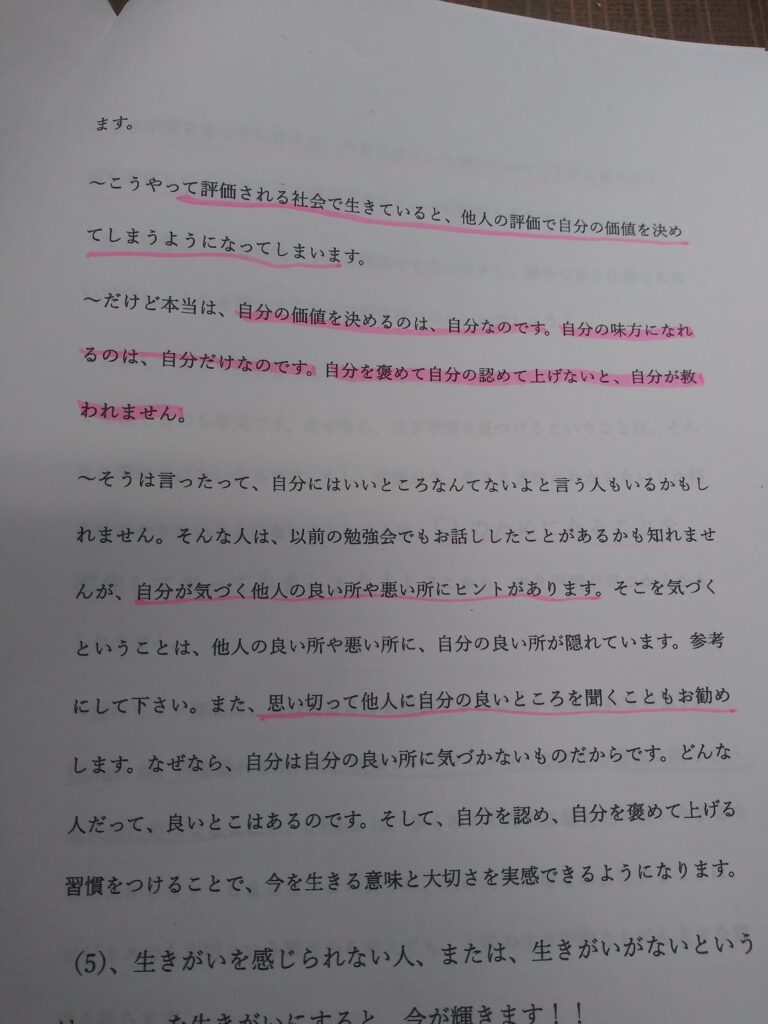 ます。
～こうやって評価される社会で生きていると、他人の評価で自分の価値を決め
てしまうようになってしまいます。
～だけど本当は、自分の価値を決めるのは、自分なのです。自分の味方になれ
るのは、自分だけなのです。自分を褒めて自分の認めて上げないと、自分が救
われません。
～そうは言ったって、自分にはいいところなんてないよと言う人もいるかもし
れません。そんな人は、以前の勉強会でもお話ししたことがあるかも知れませ
んが、自分が気づく他人の良い所や悪い所にヒントがあります。そこを気づく
ということは、他人の良い所や悪い所に、自分の良い所が隠れています。参考
にして下さい。また、思い切って他人に自分の良いところを聞くこともお勧め
します。なぜなら、自分は自分の良い所に気づかないものだからです。どんな
人だって、良いとこはあるのです。そして、自分を認め、自分を褒めて上げる
習慣をつけることで、今を生きる意味と大切さを実感できるようになります。
(5)、生きがいを感じられない人、または、生きがいがないという
を生きがいにすると、今が輝きます！！